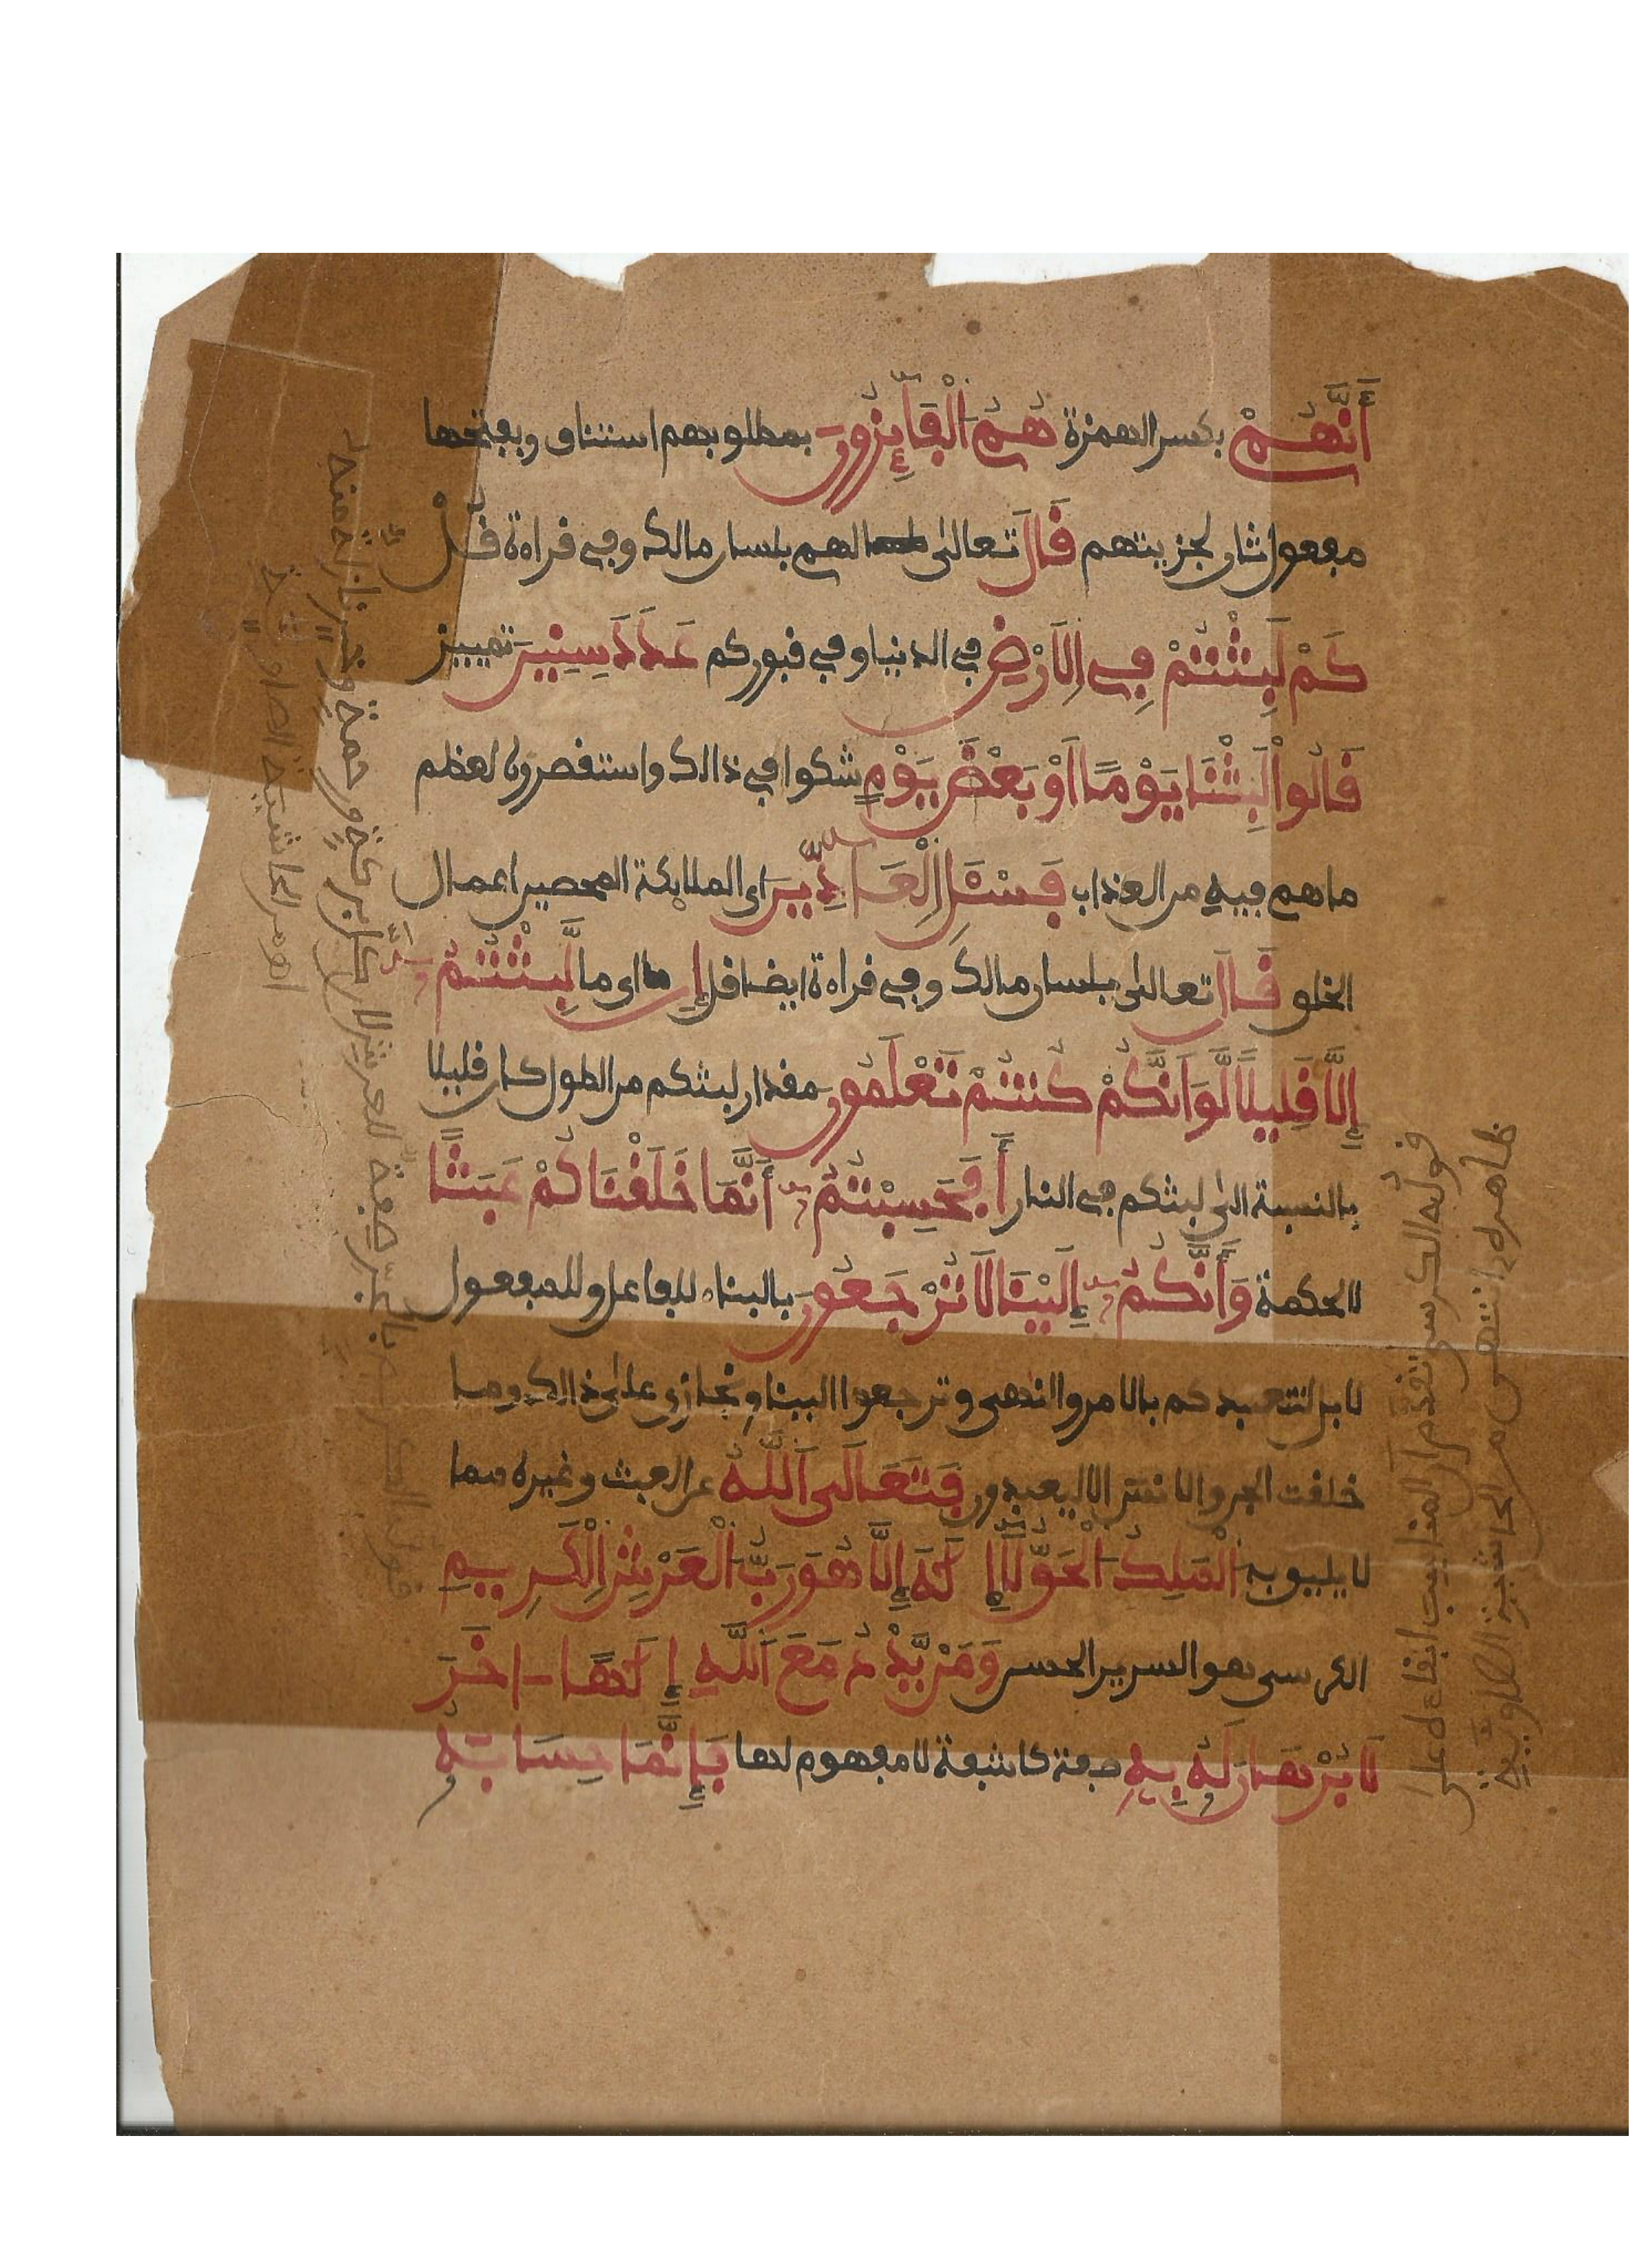 أَنَّهُمْ بكسر الهمزة هُمُ الْفَآئِزُونَ بمطلوبهم استئناف وبفتحها
مفعول ثان لجزيتهم قَالَ تعالى لهم بلسان مالك وفي قراءة قُلْ
كَمْ لَبِثْتُمْ فِي الَارْضِ في الدنيا وفي قبوركم عَدَدَ سِنِينَ تمييز
قَالُواْ لَبِثْنَا يَوْمًا اَوْ بَعْضَ يَوْمٍ شكوا في ذالك واستقصروه لعظم
ما هم فيه من العذاب فَسْـَٔلِ الْعَآدِّينَ اي الملائكة المحصين اعمال
الخلق قَالَ تعالى بلسان مالك وفي قراءة ايضا قل إِن اي ما لَّبِثْتُمُ
إِلَّا قَلِيلًا لَّوَ اَنَّكُمْ كُنتُمْ تَعْلَمُونَ مقدار لبثكم من الطول كان قليلا
بالنسبة الى لبثكم في النار أَفَحَسِبْتُمُ أَنَّمَا خَلَقْنَاكُمْ عَبَثًا
لا لحكمة وَأَنَّكُمُ إِلَيْنَا لَا تُرْجَعُونَ بالبناء للفاعل وللمفعول
لا بل لنتعبدكم بالامر والنهي وترجعوا الينا ونجازي على ذالك وما
خلقت الجن والانس الا ليعبدون فَتَعَالَى اَللَّهُ عن العبث وغيره مما
لا يليق به الْمَلِكُ الْحَقُّ لَآ إِلَٰهَ إِلَّا هُوَ رَبُّ الْعَرْشِ الْكَرِيمِ
الكرسي هو السرير الحسن وَمَنْ يَّدْعُ مَعَ اَللَّهِ إِلَٰهًا اخَرَ
لَا بُرْهَانَ لَهُ بِهِ صفة كاشفة لا مفهوم لها فَإِنَّمَا حِسَابُهُ
قوله الكرسي تقدم ان المناسب ابقاءه على
ظاهره انتهى من الحاشية الصاوية